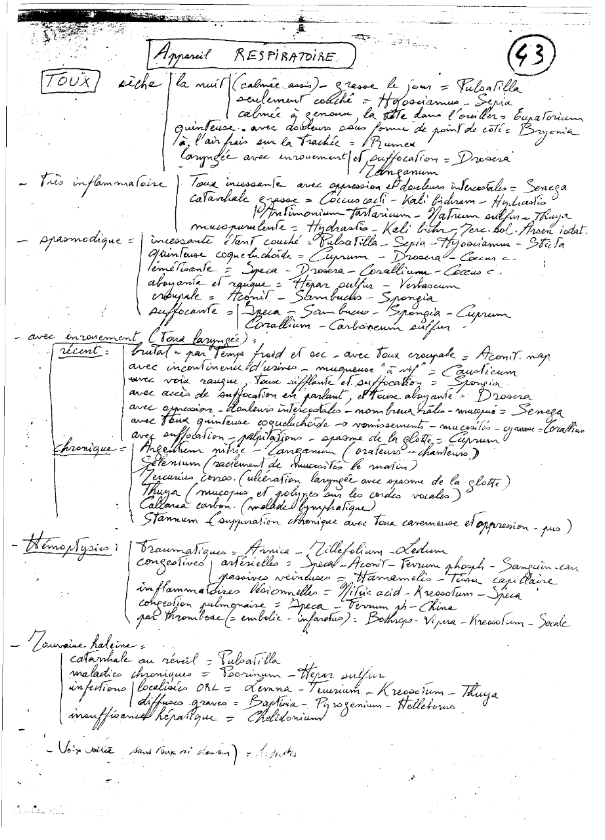 Appareil RESPIRATOIRE
43
TOUX sèche la nuit (calmée assis) - grasse le jour = Pulsatilla
seulement couché = Hyosciamus - Sepia
calmée à genoux, la tête dans l'oreiller = Eupatorium
quinteuse - avec douleurs sous forme de point de côté = Bryonia
à l'air frais sur la trachée = Rumex
laryngée avec enrouement et suffocation = Drosera
Manganum
- Très inflammatoire Toux incessante avec oppression et douleurs intercostales = Senega
catarrhale grasse = Coccus cacti - Kali bichrom - Hydrastis
Antimonium tartaricum - Natrum sulfur - Thuya
mucopurulente = Hydrastis - Kali bichr - Merc. sol. Arsen iodat.
- spasmodique = incessante étant couché = Pulsatilla - Sepia - Hyosciamus - Sticta
quinteuse coqueluchoïde = Cuprum - Drosera - Coccus c.
émétisante = Ipeca - Drosera - Corallium - Coccus c.
aboyante et rauque = Hepar sulfur - Verbascum
croupale = Aconit - Sambucus - Spongia
suffocante = Ipeca - Sambucus - Spongia - Cuprum
Corallium - Carboneum sulfur.
- avec enrouement (Toux laryngée) :
récent = brutal - par temps froid et sec - avec toux croupale = Aconit nap
avec incontinence d'urines - muqueuse "à vif" = Causticum
avec voix rauque, toux sifflante et suffocation = Spongia
avec accès de suffocation en parlant, et toux aboyante = Drosera
avec oppression - douleurs intercostales - nombreux râles - muqueux = Senega
avec toux quinteuse coqueluchoïde → vomissements - mucosités - cyanose = Corallium
avec suffocation - palpitations - spasme de la glotte = Cuprum
chronique = Argentum nitric - Manganum (orateurs - chanteurs)
Selenium (raclement de mucosités le matin)
Mercurius corros. (ulcération laryngée avec spasme de la glotte)
Thuya (mucopus et polypes sur les cordes vocales)
Calcarea carbon. (malade lymphatique)
Stannum (suppuration chronique avec toux caverneuse et oppression - pus)
- Hémoptysies : traumatiques = Arnica - Millefolium - Ledum
congestives artérielles = Ipeca - Aconit - Ferrum phosph - Sanguin. can
passives veineuses = Hamamelis - Tissu capillaire
inflammatoires lésionnelles = Nitric acid - Kreosotum - Ipeca
congestion pulmonaire = Ipeca - Ferrum ph - China
par thrombose (= embolie - infarctus) = Bothrops - Vipera - Kreosotum - Secale
- Mauvaise haleine =
catarrhale au réveil = Pulsatilla
maladies chroniques = Psorinum - Hepar sulfur
infections localisées ORL = Lemna - Teucrium - Kreosotum - Thuya
diffuses graves = Baptisia - Pyrogenium - Helleborus
insuffisance hépatique = Chelidonium
- Voix voilée sans toux ni